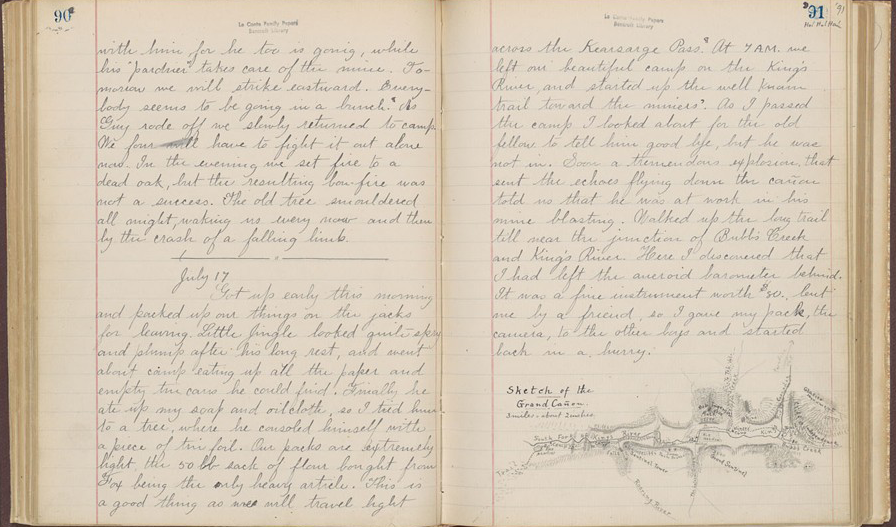 90
Le Conte Family Papers
Bancroft Library
with him for he too is going, while
his "pardner" takes care of the mine. To-
morrow we will strike eastward. Every-
body seems to be going in a bunch." As
Guy rode off we slowly returned to camp.
We four will have to fight it out alone
now. In the evening we set fire to a
dead oak, but the resulting bon-fire was
not a success. The old tree smouldered
all night, waking us every now and then
by the crash of a falling limb.
July 17
Got up early this morning
and packed up our things on the jacks
for leaving. Little Jingle looked quite spry
and plump after his long rest, and went
about camp eating up all the paper and
empty tin cans he could find. Finally he
ate up my soap and oilcloth, so I tied him
to a tree, where he consoled himself with
a piece of tin foil. Our packs are extremely
light, the 50 lb sack of flour bought from
Fox being the only heavy article. This is
a good thing as we will travel light
91
Le Conte Family Papers
Bancroft Library
across the Kearsarge Pass. At 7 A.M. we
left our beautiful camp on the King's
River, and started up the well known
trail toward the miners'. As I passed
the camp I looked about for the old
fellow to tell him good bye, but he was
not in. Soon a tremendous explosion, that
sent the echoes flying down the cañon
told us that he was at work in his
mine blasting. Walked up the long trail
till near the junction of Bubb's Creek
and King's River. Here I discovered that
I had left the aneroid barometer behind.
It was a fine instrument worth $30. lent
me by a friend, so I gave my pack, the
camera, to the other boys and started
back in a hurry.
Sketch of the
Grand Cañon.